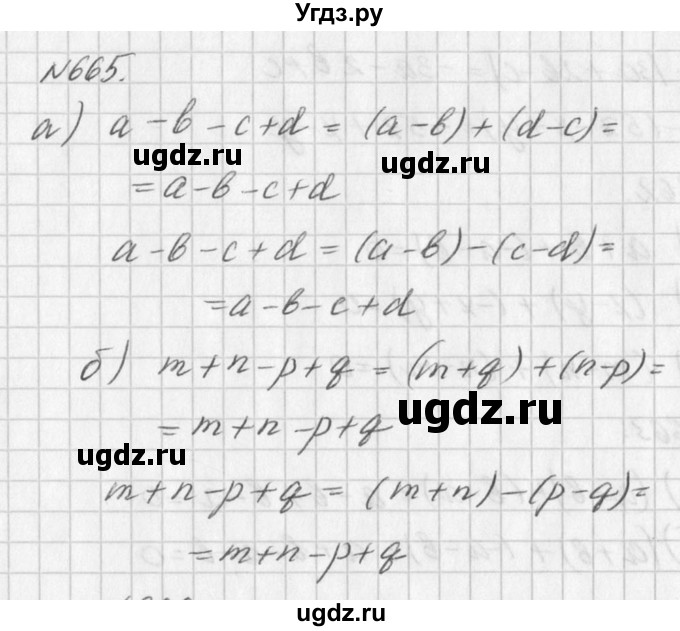 Угдз.ру
№665.
а) a-b-c+d = (a-b)+(d-c)=
ugdz.ru ugdz.ru
=a-b-c+d
a-b-c+d=(a-b)-(c-d)=
=a-b-c+d
б) m+n-p+q = (m+q)+(n-p)=
ugdz.ru
=m+n-p+q
ugdz.ru
m+n-p+q = (m+n)-(p-q)=
=m+n-p+q
ugdz.ru
ugdz.ru